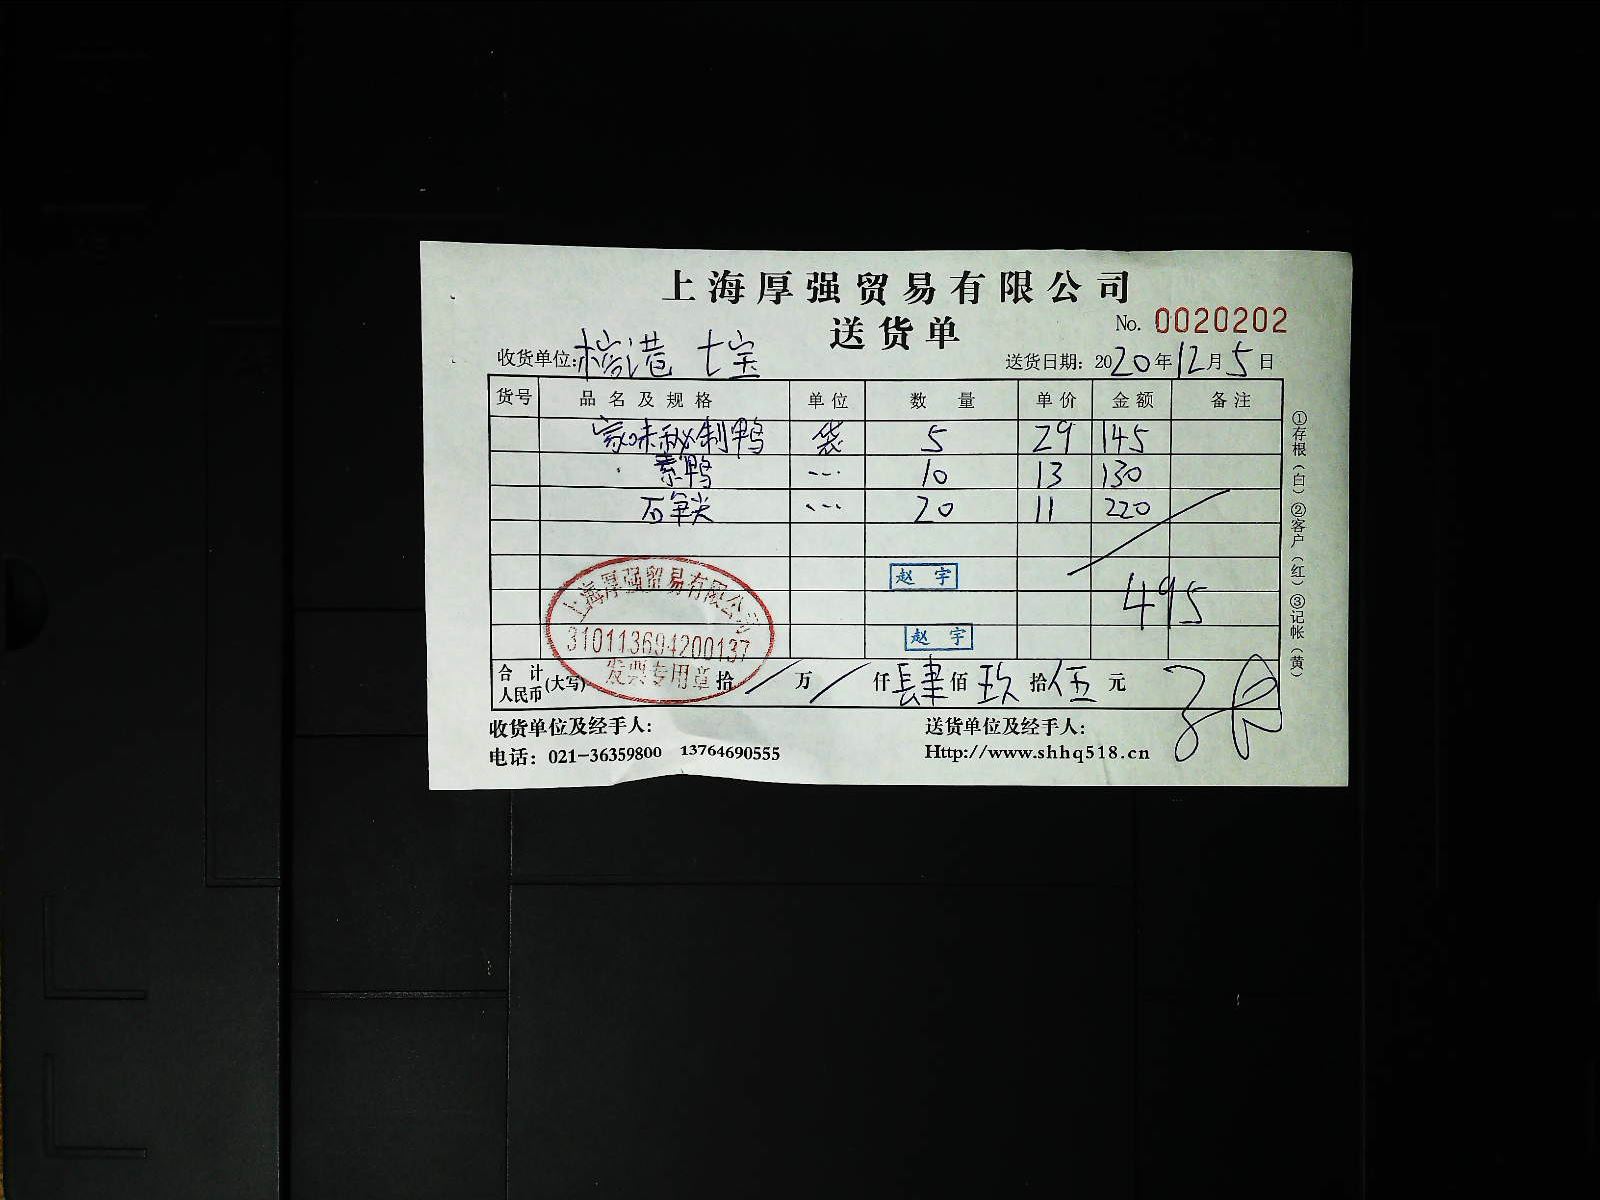 上海厚强贸易有限公司
送货单
No. 0020202
收货单位: 榕港 七宝
送货日期: 2020年12月5日
货号 品名及规格 单位 数量 单价 金额 备注
家味秘制鸭 袋 5 29 145
素鸭 … 10 13 130
石笋尖 … 20 11 220
赵宇
495
赵宇
上海厚强贸易有限公司
310113694200137
发票专用章
合计人民币(大写) 拾 / 万 / 仟肆佰玖拾伍元
收货单位及经手人:
送货单位及经手人:
电话: 021-36359800 13764690555
Http://www.shhq518.cn
①存根(白)②客户(红)③记帐(黄)